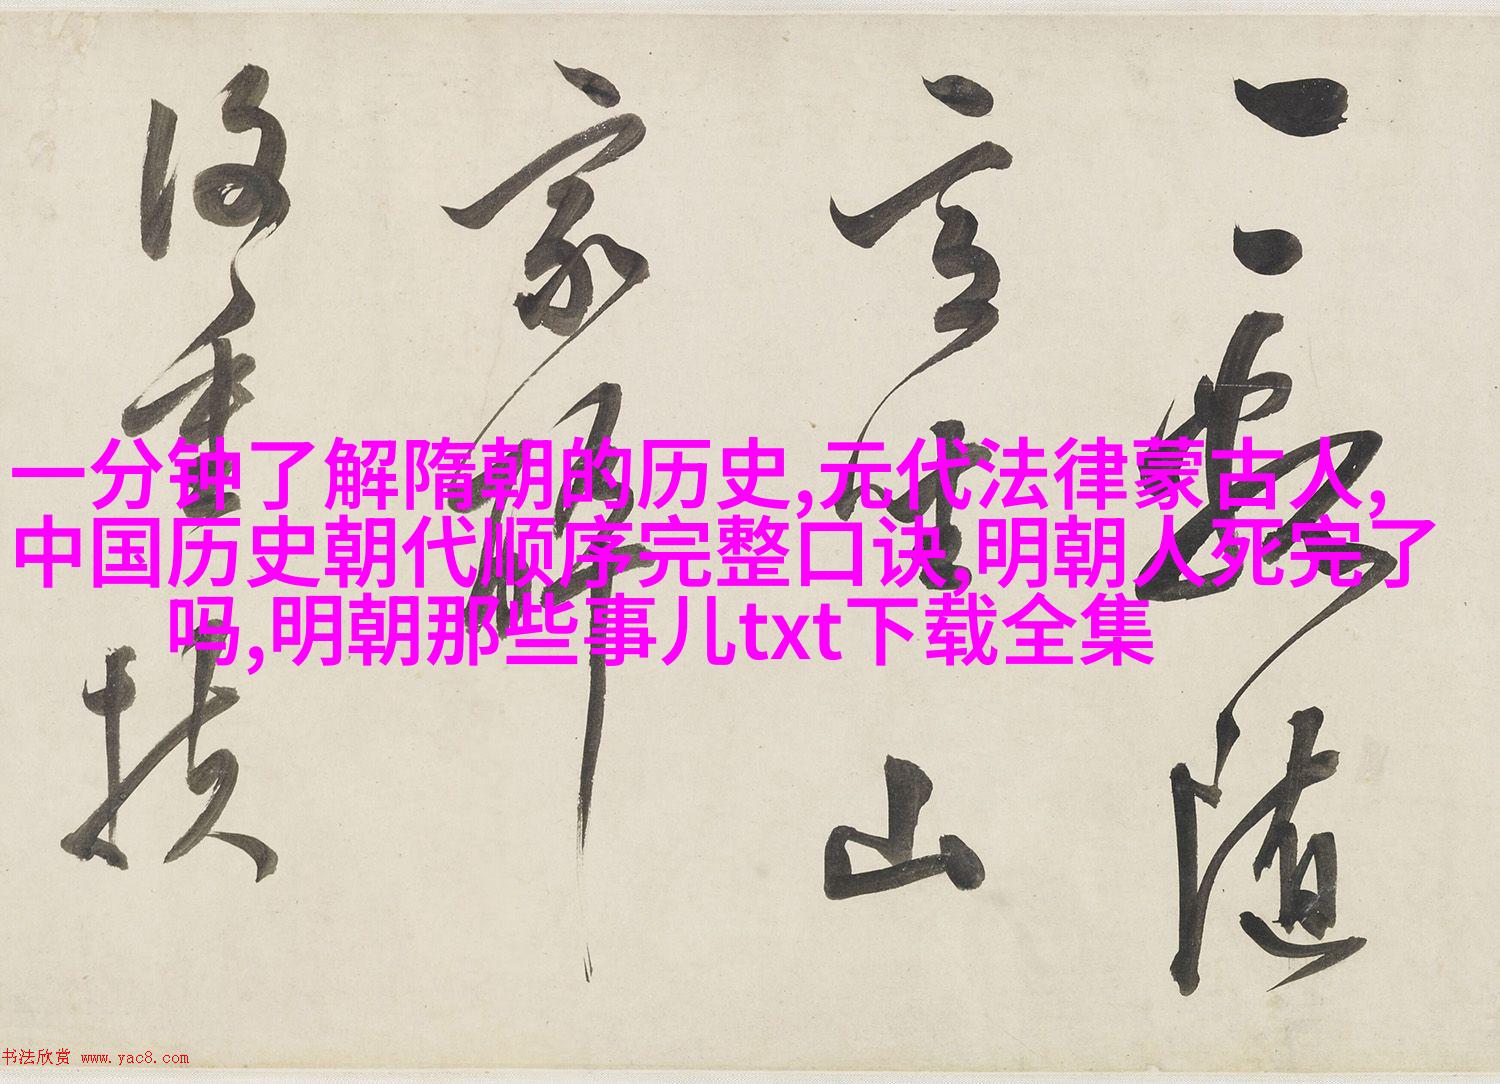 一分钟了解隋朝的历史,元代法律蒙古人,
中国历史朝代顺序完整口诀,明朝人死完了
吗,明朝那些事儿txt下载全集
隨
言生山
家
重扶
书法欣赏 www.yac8.com